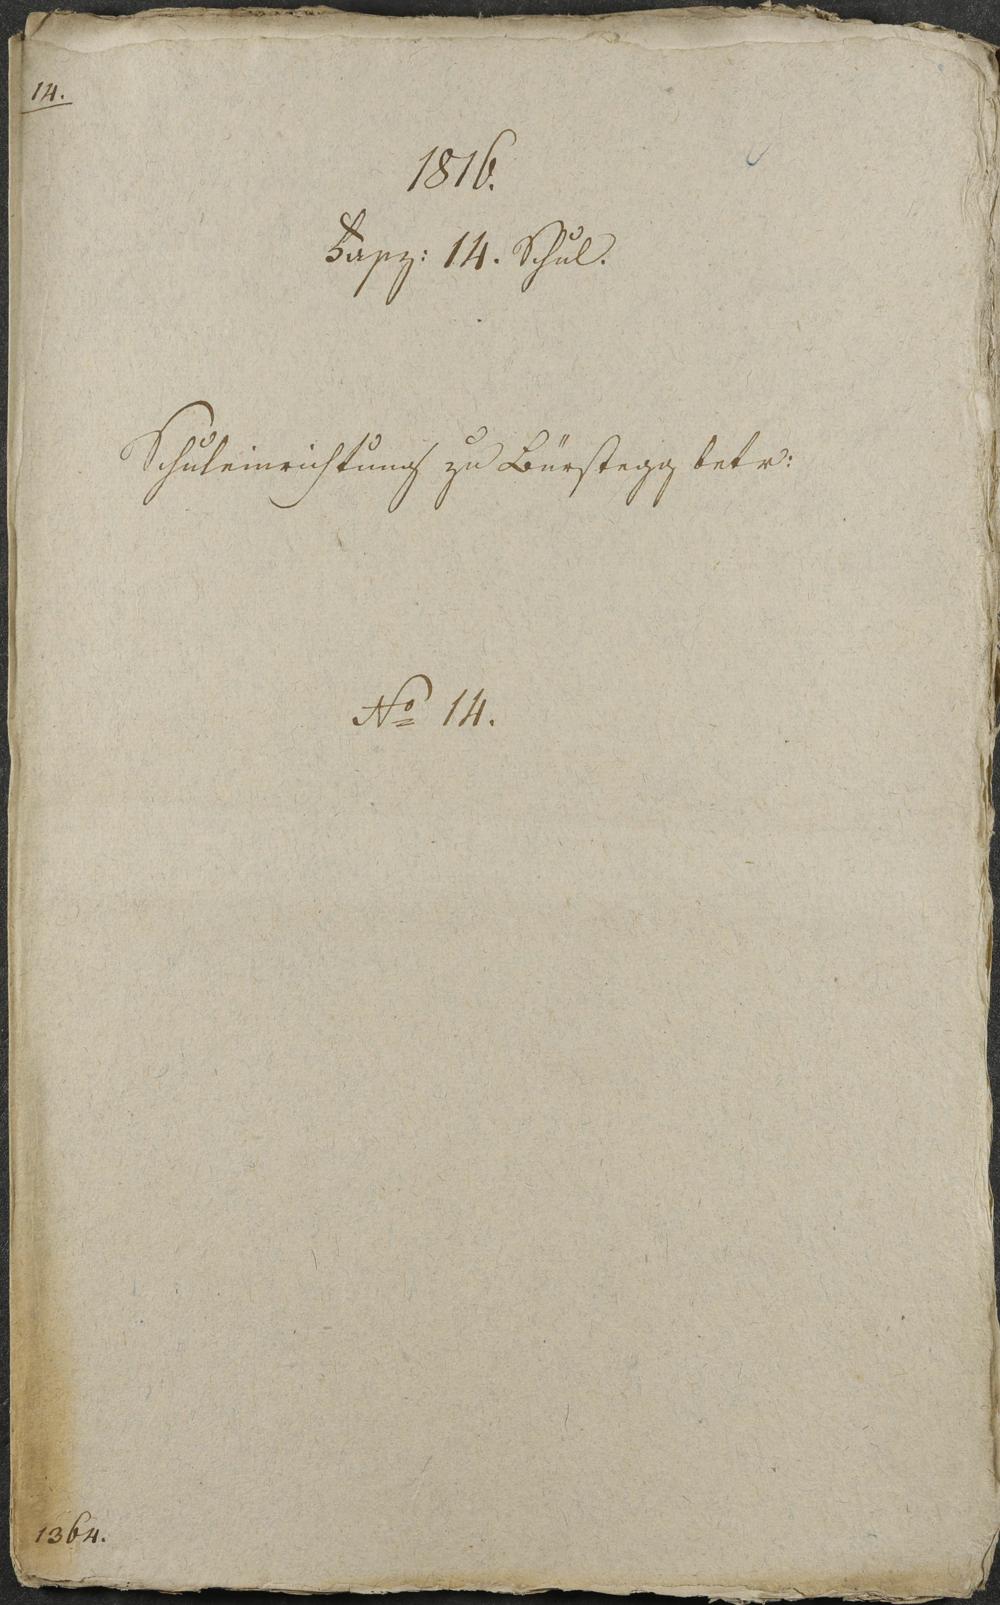 14.
1816.
Fasz: 14. Schul.
Schuleinrichtung zu Bürstegg betr:
No 14.
1364.